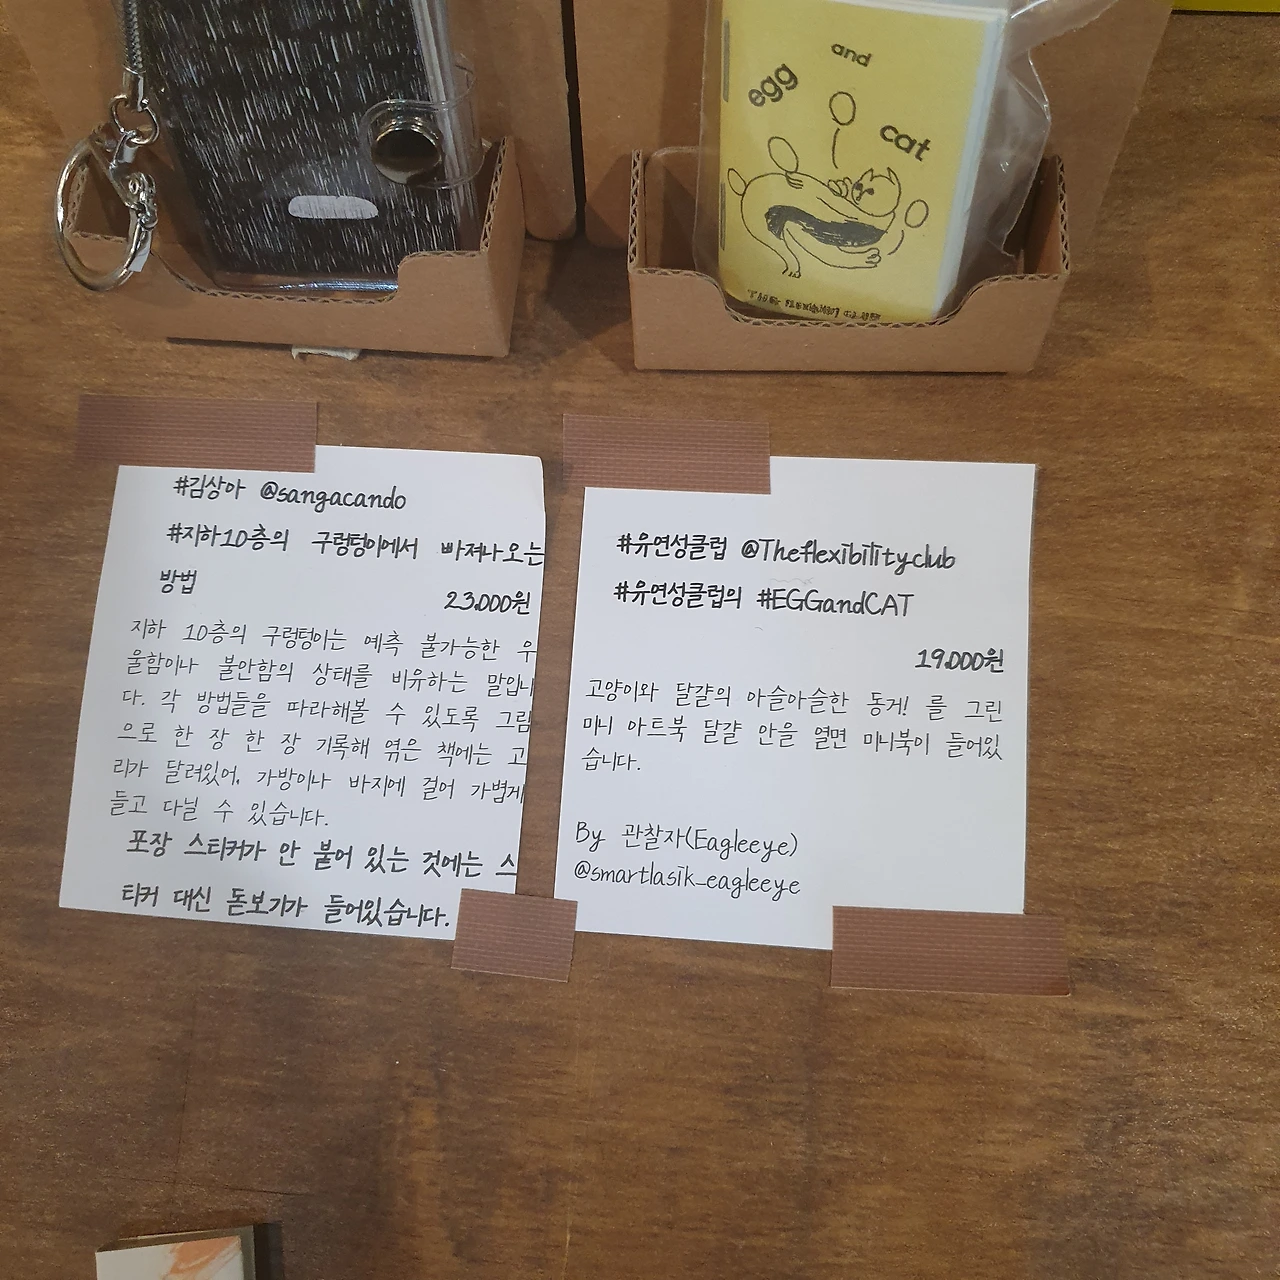 and
egg
cat
#김상아 @sangacando
#지하10층의 구렁텅이에서 빠져나오는
방법
23,000원
지하 10층의 구렁텅이는 예측 불가능한 우
울함이나 불안함의 상태를 비유하는 말입니
다. 각 방법들을 따라해볼 수 있도록 그림
으로 한 장 한 장 기록해 엮은 책에는 고
리가 달려있어, 가방이나 바지에 걸어 가볍게
들고 다닐 수 있습니다.
포장 스티커가 안 붙어 있는 것에는 스
티커 대신 돋보기가 들어있습니다.
#유연성클럽 @Theflexibilityclub
#유연성클럽의 #EGGandCAT
19,000원
고양이와 달걀의 아슬아슬한 동거! 를 그린
미니 아트북 달걀 안을 열면 미니북이 들어있
습니다.
By 관찰자(Eagleeye)
@smartlasik_eagleeye